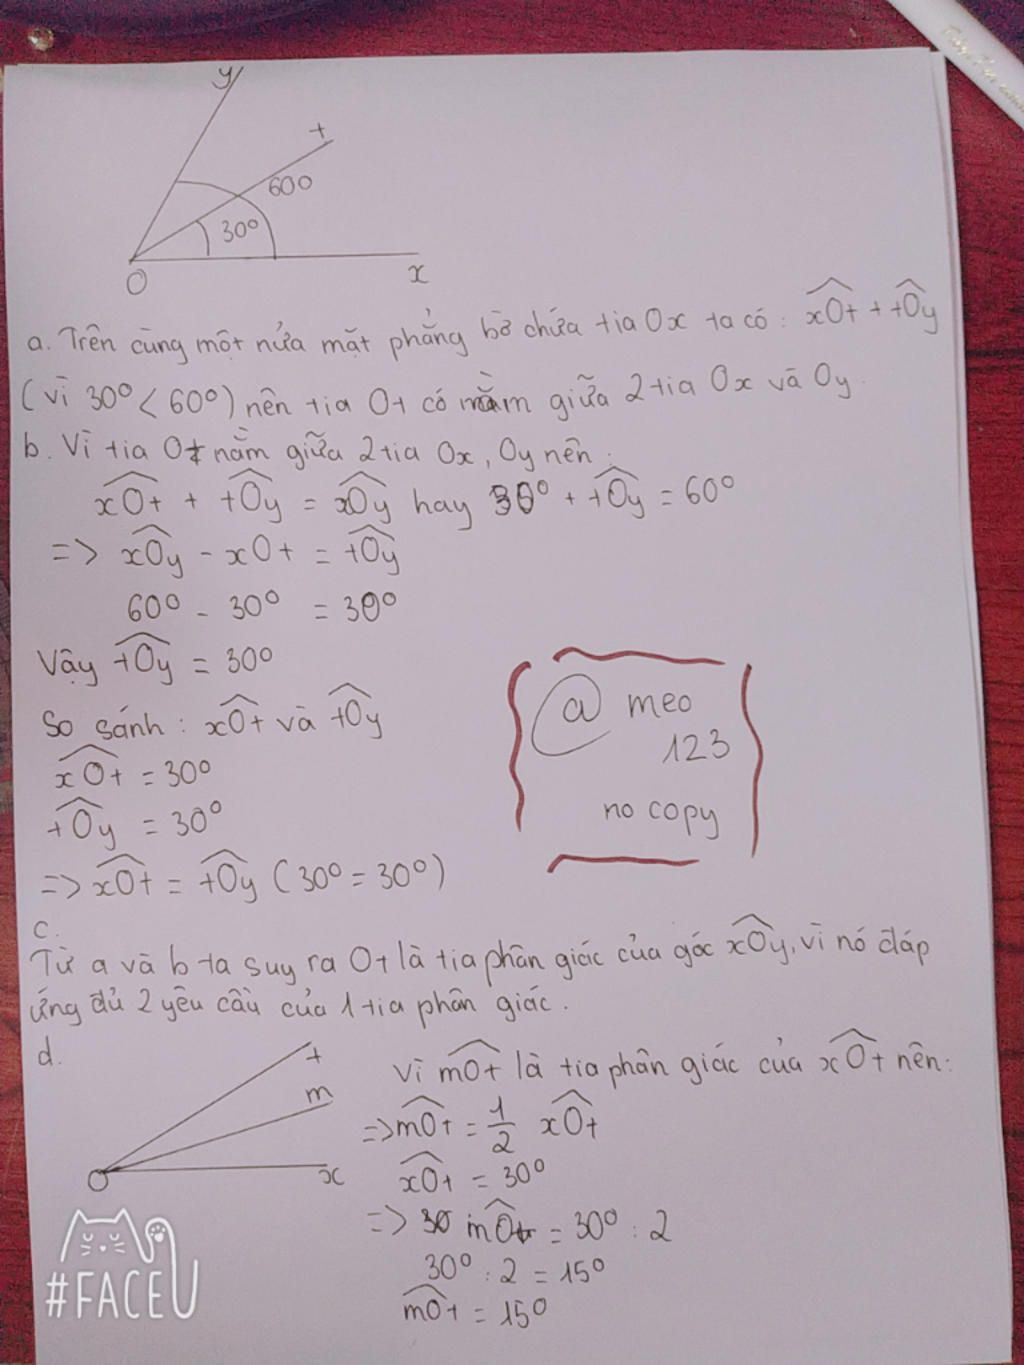 y
t
60°
30°
O
x
a. Trên cùng một nửa mặt phẳng bờ chứa tia Ox ta có: xOt + tOy
(vì 30° < 60°) nên tia Ot có nằm giữa 2 tia Ox và Oy.
b. Vì tia Ot nằm giữa 2 tia Ox, Oy nên:
xOt + tOy = xOy hay 30° + tOy = 60°
=> xOy - xOt = tOy
60° - 30° = 30°
Vậy tOy = 30°
So sánh: xOt và tOy
xOt = 30°
tOy = 30°
=> xOt = tOy (30° = 30°)
@ meo
123
no copy
c.
Từ a và b ta suy ra Ot là tia phân giác của góc xOy, vì nó đáp
ứng đủ 2 yêu cầu của 1 tia phân giác.
d.
t
m
x
O
Vì mOt là tia phân giác của xOt nên:
=> mOt = 1/2 xOt
xOt = 30°
=> 30 mOt = 30° : 2
30° : 2 = 15°
mOt = 15°
#FACEU